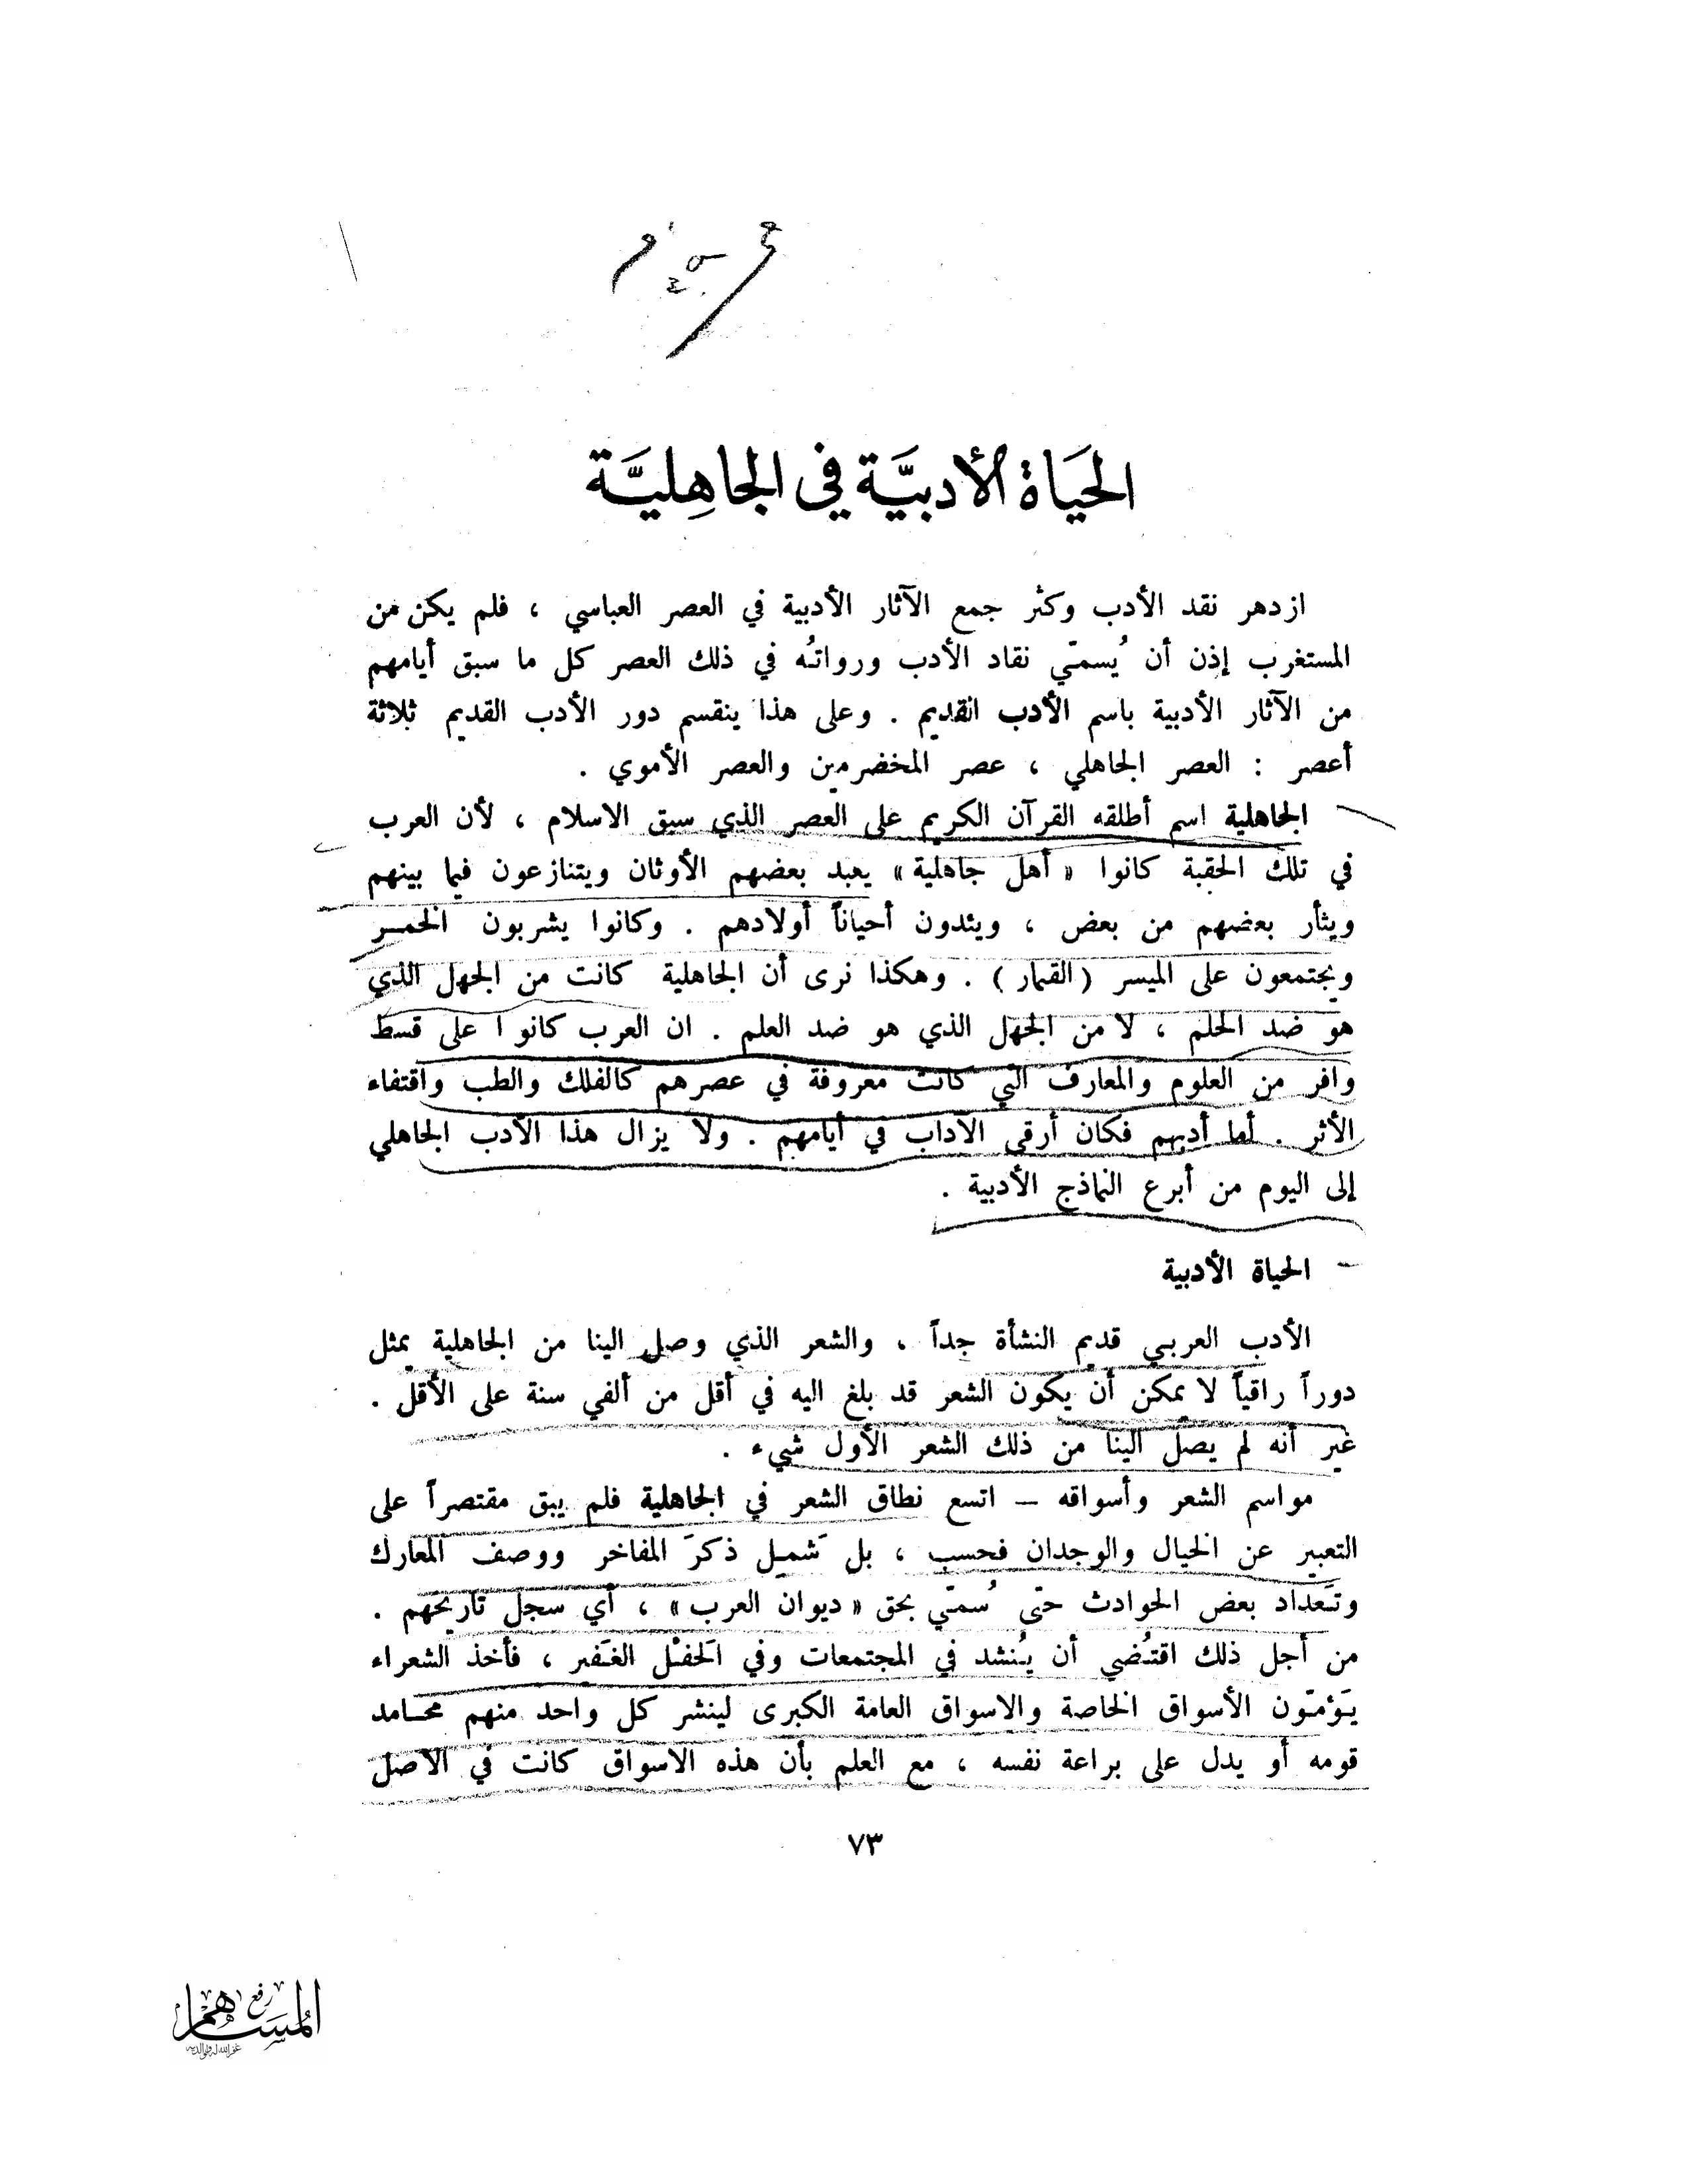 الحَيَاة الأدبيَّة في الجاهِليَّة
ازدهر نقد الأدب وكثر جمع الآثار الأدبية في العصر العباسي ، فلم يكن من
المستغرب إذن أن يُسمّي نقاد الأدب ورواتُه في ذلك العصر كل ما سبق أيامهم
من الآثار الأدبية باسم الأدب القديم . وعلى هذا ينقسم دور الأدب القديم ثلاثة
أعصر : العصر الجاهلي ، عصر المخضرمين والعصر الأموي .
الجاهلية اسم أطلقه القرآن الكريم على العصر الذي سبق الاسلام ، لأن العرب
في تلك الحقبة كانوا « أهل جاهلية » يعبد بعضهم الأوثان ويتنازعون فيما بينهم
ويثأر بعضهم من بعض ، ويئدون أحياناً أولادهم . وكانوا يشربون الخمـر
ويجتمعون على الميسر ( القمار ) . وهكذا نرى أن الجاهلية كانت من الجهل الذي
هو ضد الحلم ، لا من الجهل الذي هو ضد العلم . ان العرب كانوا على قسط
وافر من العلوم والمعارف التي كانت معروفة في عصرهم كالفلك والطب واقتفاء
الأثر . أما أدبهم فكان أرقى الآداب في أيامهم . ولا يزال هذا الأدب الجاهلي
إلى اليوم من أبرع النماذج الأدبية .
– الحياة الأدبية
الأدب العربي قديم النشأة جداً ، والشعر الذي وصل الينا من الجاهلية يمثل
دوراً راقياً لا يمكن أن يكون الشعر قد بلغ اليه في أقل من ألفي سنة على الأقل .
غير أنه لم يصل الينا من ذلك الشعر الأول شيء .
مواسم الشعر وأسواقه – اتسع نطاق الشعر في الجاهلية فلم يبق مقتصراً على
التعبير عن الخيال والوجدان فحسب ، بل شَمِل ذكرَ المفاخر ووصف المعارك
وتَعداد بعض الحوادث حتى سُمّي بحق « ديوان العرب » ، أي سجل تاريخهم .
من أجل ذلك اقتُضي أن يُنشد في المجتمعات وفي الَحفْل الغَفير ، فأخذ الشعراء
يَؤمّون الأسواق الخاصة والاسواق العامة الكبرى لينشر كل واحد منهم محـامد
قومه أو يدل على براعة نفسه ، مع العلم بأن هذه الاسواق كانت في الاصل
٧٣
رفع
المساهم
غفر الله له ولوالديه